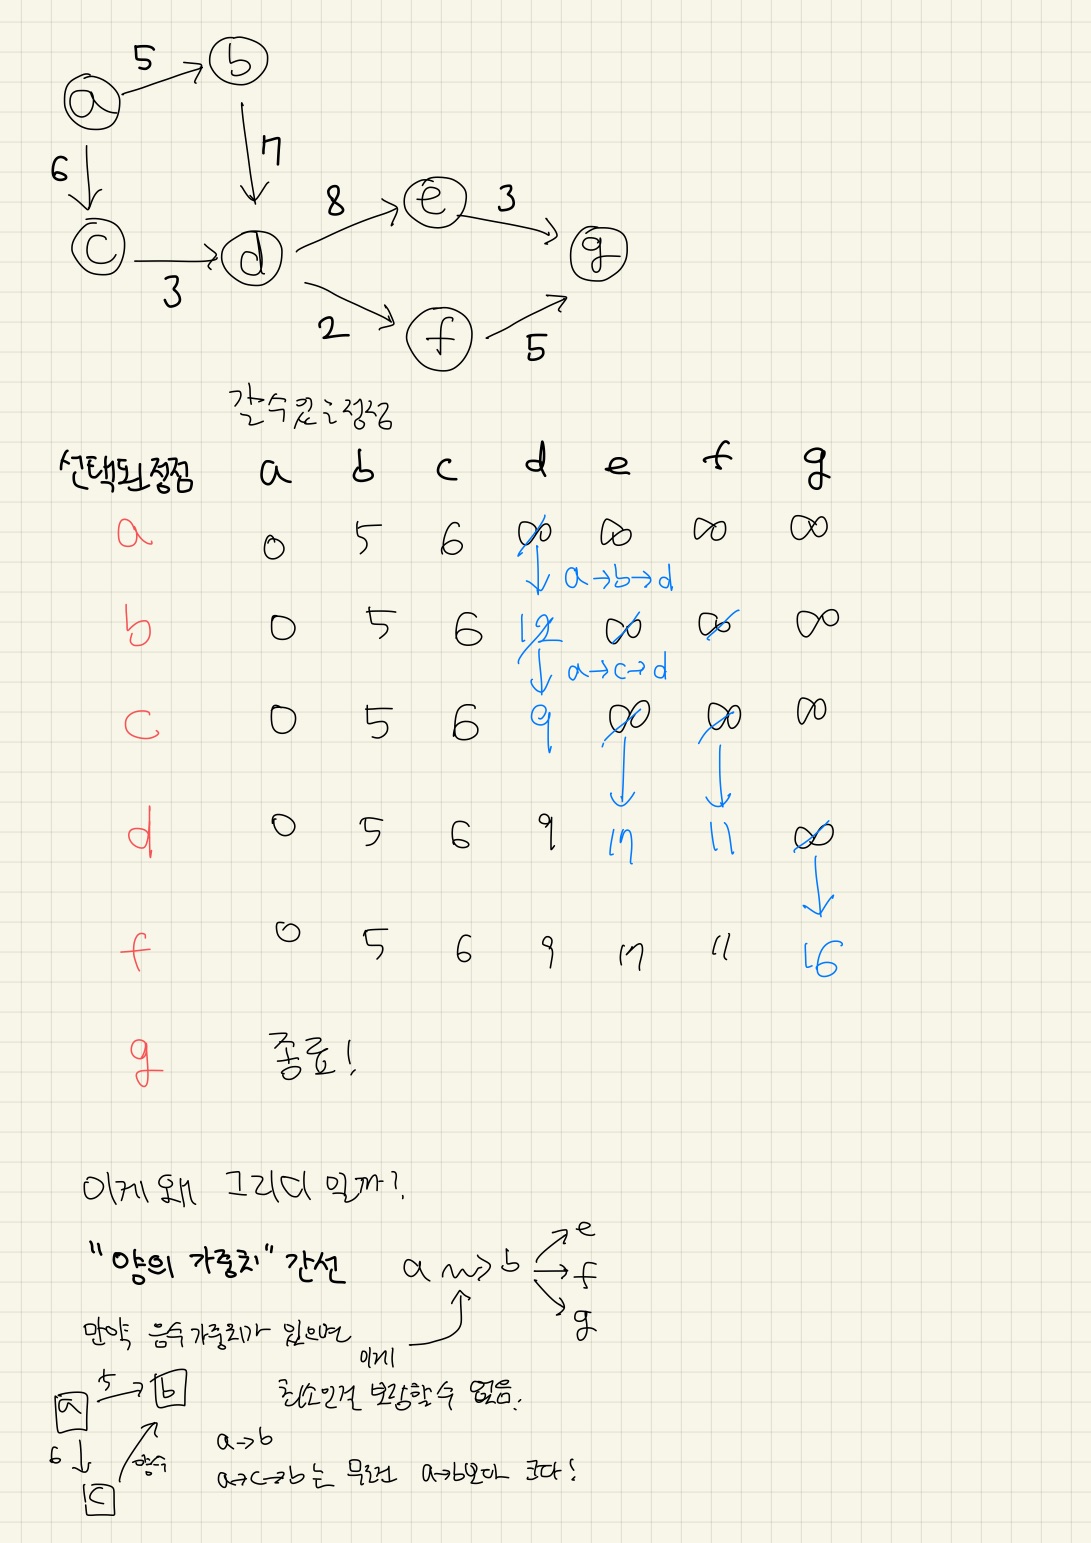 5
a
b
6
7
8
e
3
c
d
g
3
2
f
5
갈 수 있는 정점
선택된 정점 a b c d e f g
a 0 5 6 ∞ ∞ ∞ ∞
a→b→d
b 0 5 6 12 ∞ ∞ ∞
a→c→d
c 0 5 6 9 ∞ ∞ ∞
d 0 5 6 9 17 11 ∞
f 0 5 6 9 17 11 16
g 종료!
이게 왜 그리디 일까?
"양의 가중치" 간선
a ~> b → e
→ f
→ g
만약 음수 가중치가 있으면
이게
최소인걸 보장할 수 없음.
a 5 b
6 양수
c
a→b
a→c→b는 무조건 a→b보다 크다!